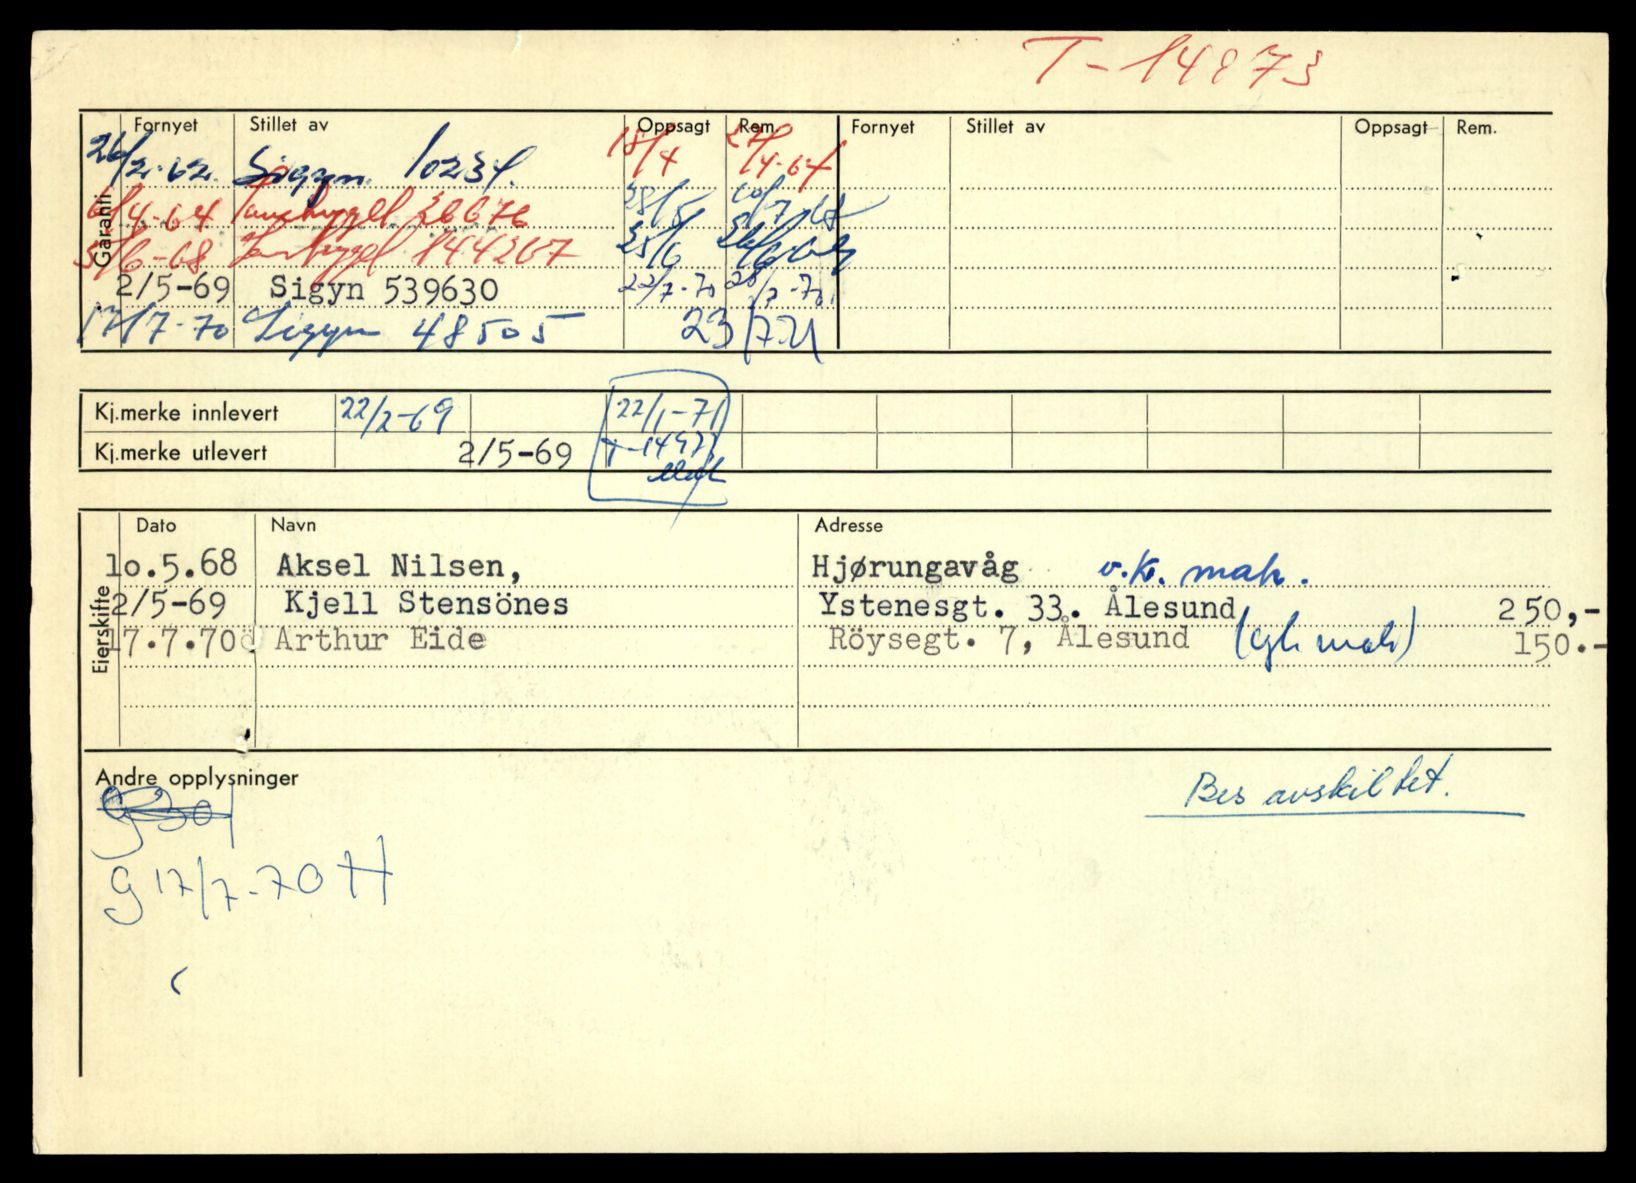 T-14973
Fornyet Stillet av Oppsagt Rem. Fornyet Stillet av Oppsagt Rem.
Garanti
26/2-62. Sigyn 10234. 18/4 27/4-64
6/4-64 26676 28/5 10/7
5/6-68 144267 25/6
2/5-69 Sigyn 539630 22/7-70 28/7-70.
17/7-70 Sigyn 48505 23/7 71
Kj.merke innlevert 22/2-69 22/1-71
Kj.merke utlevert 2/5-69 T-14973
Eierskifte
Dato Navn Adresse
lo.5.68 Aksel Nilsen, Hjørungavåg v.k. mak.
2/5-69 Kjell Stensönes Ystenesgt. 33. Ålesund 250,-
17.7.70 Arthur Eide Röysegt. 7, Ålesund 150.-
Andre opplysninger
Bes avskiltet.
g 17/7-70 H